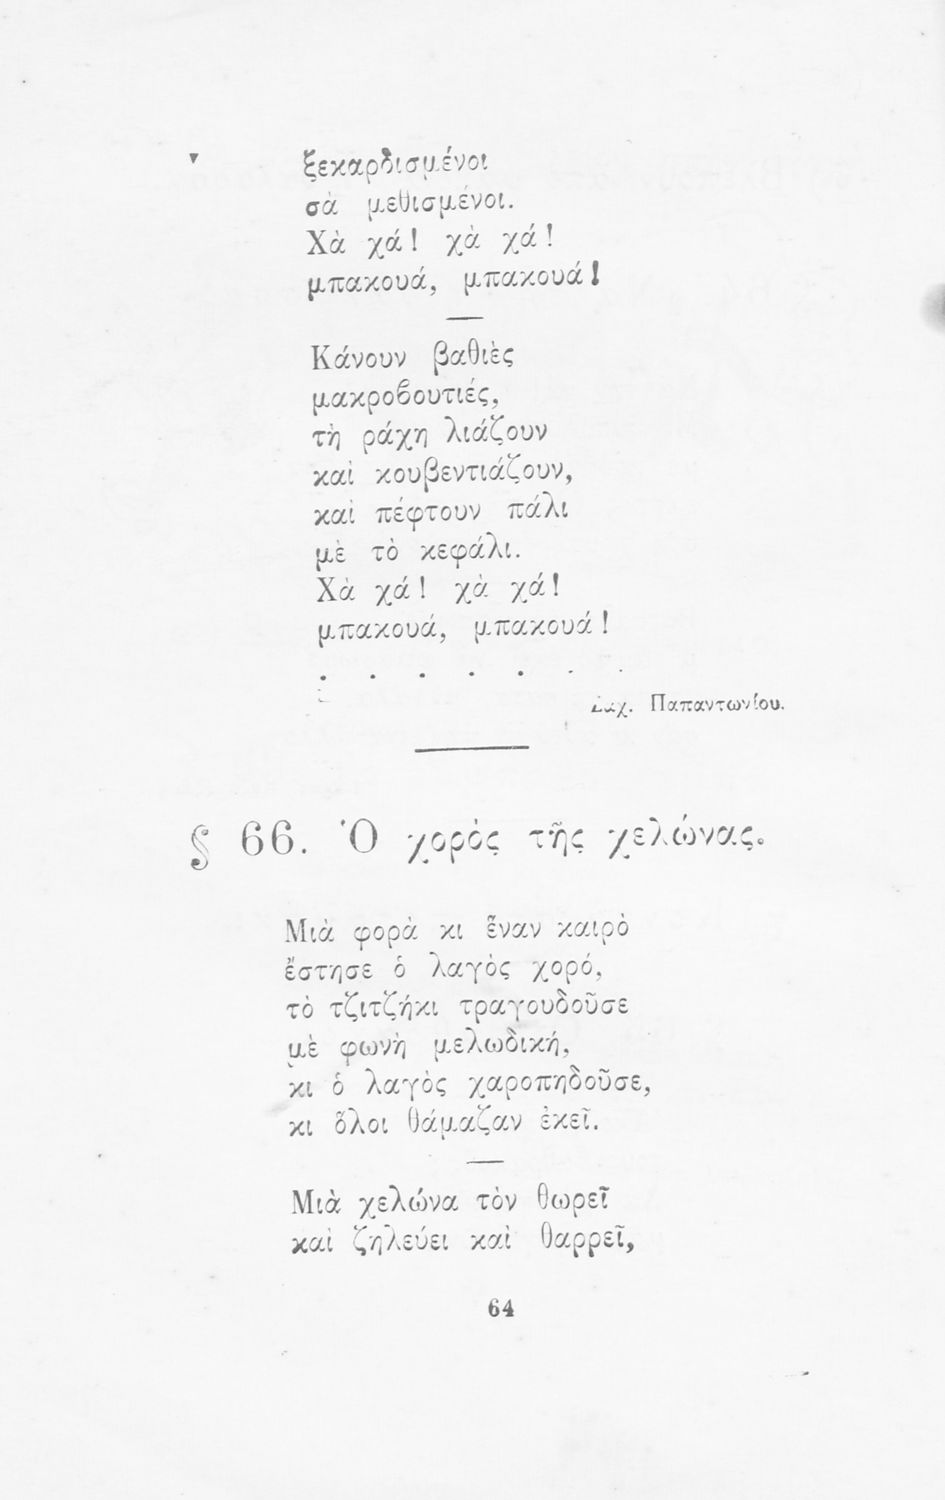 ξεκαρδισμένοι
σὰ μεθισμένοι.
Χὰ χά! χὰ χά!
μπακουά, μπακουά!
Κάνουν βαθιὲς
μακροβουτιές,
τὴ ράχη λιάζουν
καὶ κουβεντιάζουν,
καὶ πέφτουν πάλι
μὲ τὸ κεφάλι.
Χὰ χά! χὰ χά!
μπακουά, μπακουά!
. . . . . . .
Ζαχ. Παπαντωνίου.
§ 66. Ὁ χορὸς τῆς χελώνας.
Μιὰ φορὰ κι ἕναν καιρὸ
ἔστησε ὁ λαγὸς χορό,
τὸ τζιτζήκι τραγουδοῦσε
μὲ φωνὴ μελωδική,
κι ὁ λαγὸς χαροπηδοῦσε,
κι ὅλοι θάμαζαν ἐκεῖ.
Μιὰ χελώνα τὸν θωρεῖ
καὶ ζηλεύει καὶ θαρρεῖ,
64